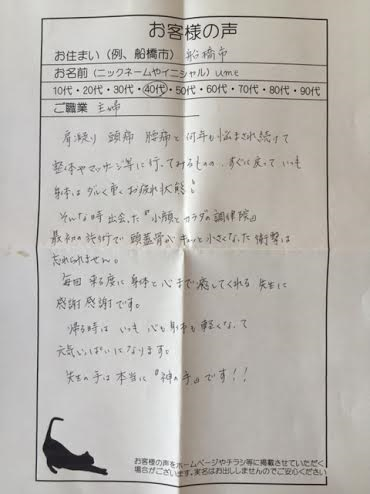 お客様の声
お住まい（例、船橋市） 船橋市
お名前（ニックネームやイニシャル）ume
10代・20代・30代・40代・50代・60代・70代・80代・90代
ご職業 主婦
肩凝り 頭痛 腰痛と何年も悩まされ続けて
整体やマッサージ等に行ってみるものの、すぐに戻って いつも
身体は ダルく重く お疲れ状態
そんな時 出会った『小顔とカラダの調律院』
最初の施術で 頭蓋骨が キュッと小さくなった衝撃は
忘れられません。
毎回 来る度に 身体と心まで癒してくれる 先生に
感謝感謝です。
帰る時は いつも 心も身体も軽くなって
元気いっぱいになります。
先生の手は本当に『神の手』です！！
お客様の声をホームページやチラシ等に掲載させていただく
場合がございます。実名はお出ししませんのでご安心ください